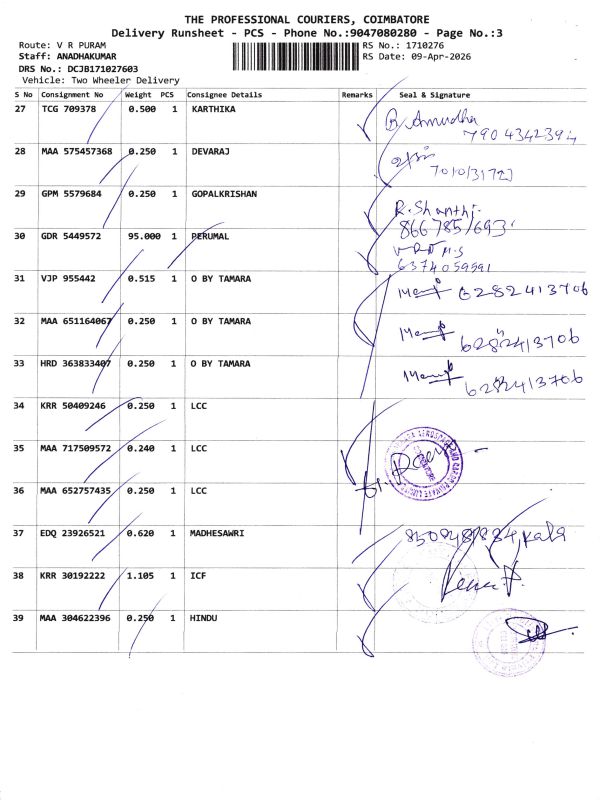 THE PROFESSIONAL COURIERS, COIMBATORE
Delivery Runsheet - PCS - Phone No.:9047080280 - Page No.:3
Route: V R PURAM
RS No.: 1710276
Staff: ANADHAKUMAR
RS Date: 09-Apr-2026
DRS No.: DCJB171027603
Vehicle: Two Wheeler Delivery
S No Consignment No Weight PCS Consignee Details Remarks Seal & Signature
27 TCG 709378 0.500 1 KARTHIKA B. Anuradha
790 4342394
28 MAA 575457368 0.250 1 DEVARAJ
29 GPM 5579684 0.250 1 GOPALKRISHAN R. Shanthi.
30 GDR 5449572 95.000 1 PERUMAL
6374059591
31 VJP 955442 0.515 1 O BY TAMARA 6282413706
32 MAA 651164067 0.250 1 O BY TAMARA 6282413706
33 HRD 363833407 0.250 1 O BY TAMARA 6282413706
34 KRR 50409246 0.250 1 LCC
35 MAA 717509572 0.240 1 LCC
36 MAA 652757435 0.250 1 LCC
37 EDQ 23926521 0.620 1 MADHESAWRI Kala
38 KRR 30192222 1.105 1 ICF
39 MAA 304622396 0.250 1 HINDU